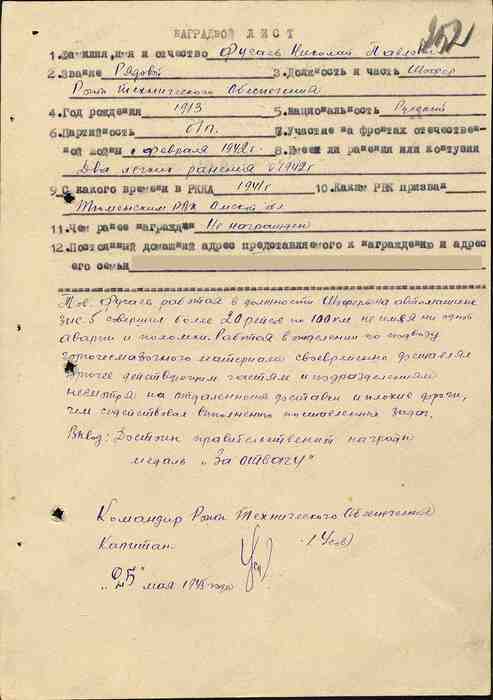 252
НАГРАДНОЙ ЛИСТ
1.Фамилия,имя и отчество Фусаев Николай Павлович
2.Звание Рядовой 3.Должность и часть Шофер
Роты Технического Обеспечения
4.Год рождения 1913 5.Национальность Русский
6.Партийность б/п. 7.Участие на фронтах отечествен-
ной войны с февраля 1942г. 8.Имеет ли ранения или контузии
Два легких ранения 1942г
9.С какого времени в РККА 1941г 10.Каким РВК призван
Тюменским РВК Омской обл
11.Чем ранее награжден Не награжден
12.Постоянный домашний адрес представляемого к награждению и адрес
его семьи
Тов. Фусаев работая в должности Шофера на автомашине
Зис-5 совершил более 20 рейсов по 100 км не имея ни одной
аварии и поломки. Работая в отделении по подвозу
горючесмазочного материала своевременно доставлял
горючее действующим частям и подразделениям
несмотря на отдаленность доставки и плохие дороги,
чем содействовал выполнению поставленных задач.
Вывод: Достоин правительственной награды
медаль „За отвагу"
Командир Роты Технического Обеспечения
Капитан (Усов)
„25" мая 1945 года